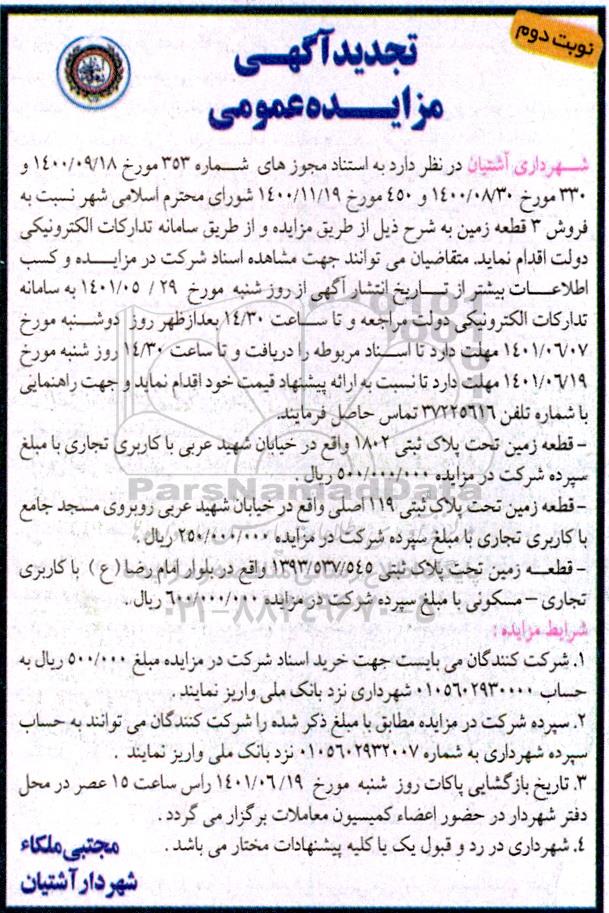 نوبت دوم
تجدید آگهی
مزایده عمومی
شهرداری آشتیان در نظر دارد به استناد مجوز های شماره ۳۵۳ مورخ ۱۴۰۰/۰۹/۱۸ و
۳۳۰ مورخ ۱۴۰۰/۰۸/۳۰ و ۴۵۰ مورخ ۱۴۰۰/۱۱/۱۹ شورای محترم اسلامی شهر نسبت به
فروش ۳ قطعه زمین به شرح ذیل از طریق مزایده و از طریق سامانه تدارکات الکترونیکی
دولت اقدام نماید. متقاضیان می توانند جهت مشاهده اسناد شرکت در مزایده و کسب
اطلاعات بیشتر از تاریخ انتشار آگهی از روز شنبه مورخ ۲۹ / ۱۴۰۱/۰۵ به سامانه
تدارکات الکترونیکی دولت مراجعه و تا ساعت ۱۴/۳۰ بعدازظهر روز دوشنبه مورخ
۱۴۰۱/۰۶/۰۷ مهلت دارد تا اسناد مربوطه را دریافت و تا ساعت ۱۴/۳۰ روز شنبه مورخ
۱۴۰۱/۰۶/۱۹ مهلت دارد تا نسبت به ارائه پیشنهاد قیمت خود اقدام نماید و جهت راهنمایی
با شماره تلفن ۳۷۲۲۵۶۱۶ تماس حاصل فرمایند.
- قطعه زمین تحت پلاک ثبتی ۱۸۰۲ واقع در خیابان شهید عربی با کاربری تجاری با مبلغ
سپرده شرکت در مزایده ۵۰۰/۰۰۰/۰۰۰ ریال .
ParsNamadData
- قطعه زمین تحت پلاک ثبتی ۱۱۹ اصلی واقع در خیابان شهید عربی روبروی مسجد جامع
با کاربری تجاری با مبلغ سپرده شرکت در مزایده ۲۵۰/۰۰۰/۰۰۰ ریال .
- قطعه زمین تحت پلاک ثبتی ۱۳۹۳/۵۳۷/۵۴۵ واقع در بلوار امام رضا (ع) با کاربری
تجاری – مسکونی با مبلغ سپرده شرکت در مزایده ۶۰۰/۰۰۰/۰۰۰ ریال .
شرایط مزایده :
۱. شرکت کنندگان می بایست جهت خرید اسناد شرکت در مزایده مبلغ ۵۰۰/۰۰۰ ریال به
حساب ۰۱۰۵۶۰۲۹۳۰۰۰۰ شهرداری نزد بانک ملی واریز نمایند .
۲. سپرده شرکت در مزایده مطابق با مبلغ ذکر شده را شرکت کنندگان می توانند به حساب
سپرده شهرداری به شماره ۰۱۰۵۶۰۲۹۳۲۰۰۷ نزد بانک ملی واریز نمایند .
۳. تاریخ بازگشایی پاکات روز شنبه مورخ ۱۴۰۱/۰۶/۱۹ راس ساعت ۱۵ عصر در محل
دفتر شهردار در حضور اعضاء کمیسیون معاملات برگزار می گردد .
۴. شهرداری در رد و قبول یک یا کلیه پیشنهادات مختار می باشد .
مجتبی ملکاء
شهردار آشتیان